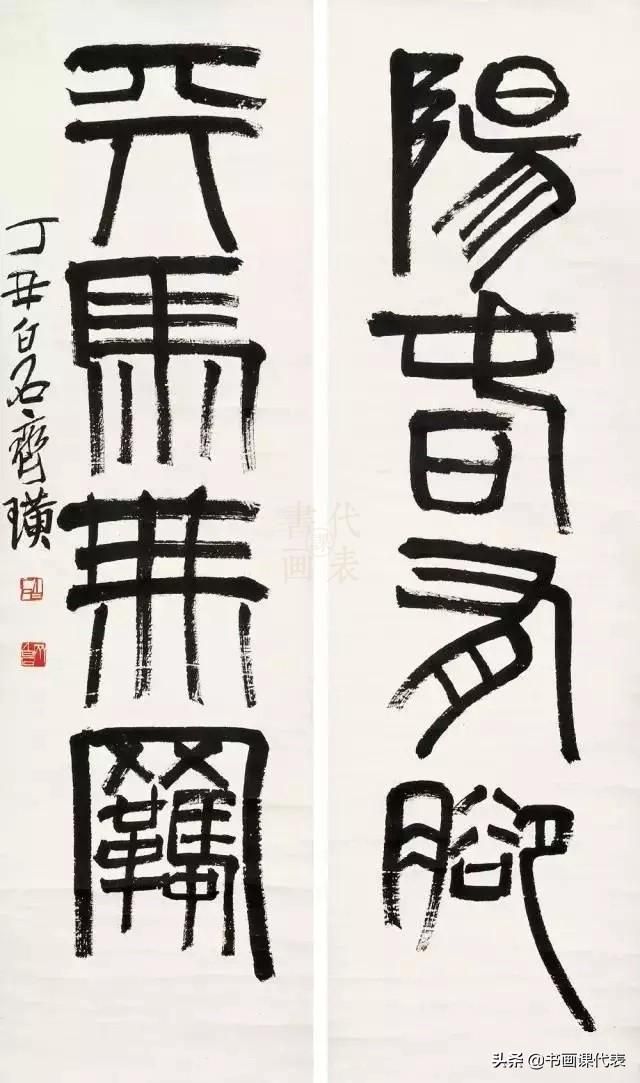 陽春有腳
天馬無羈
丁丑白石齊璜
代表
書画
头条 @书画课代表